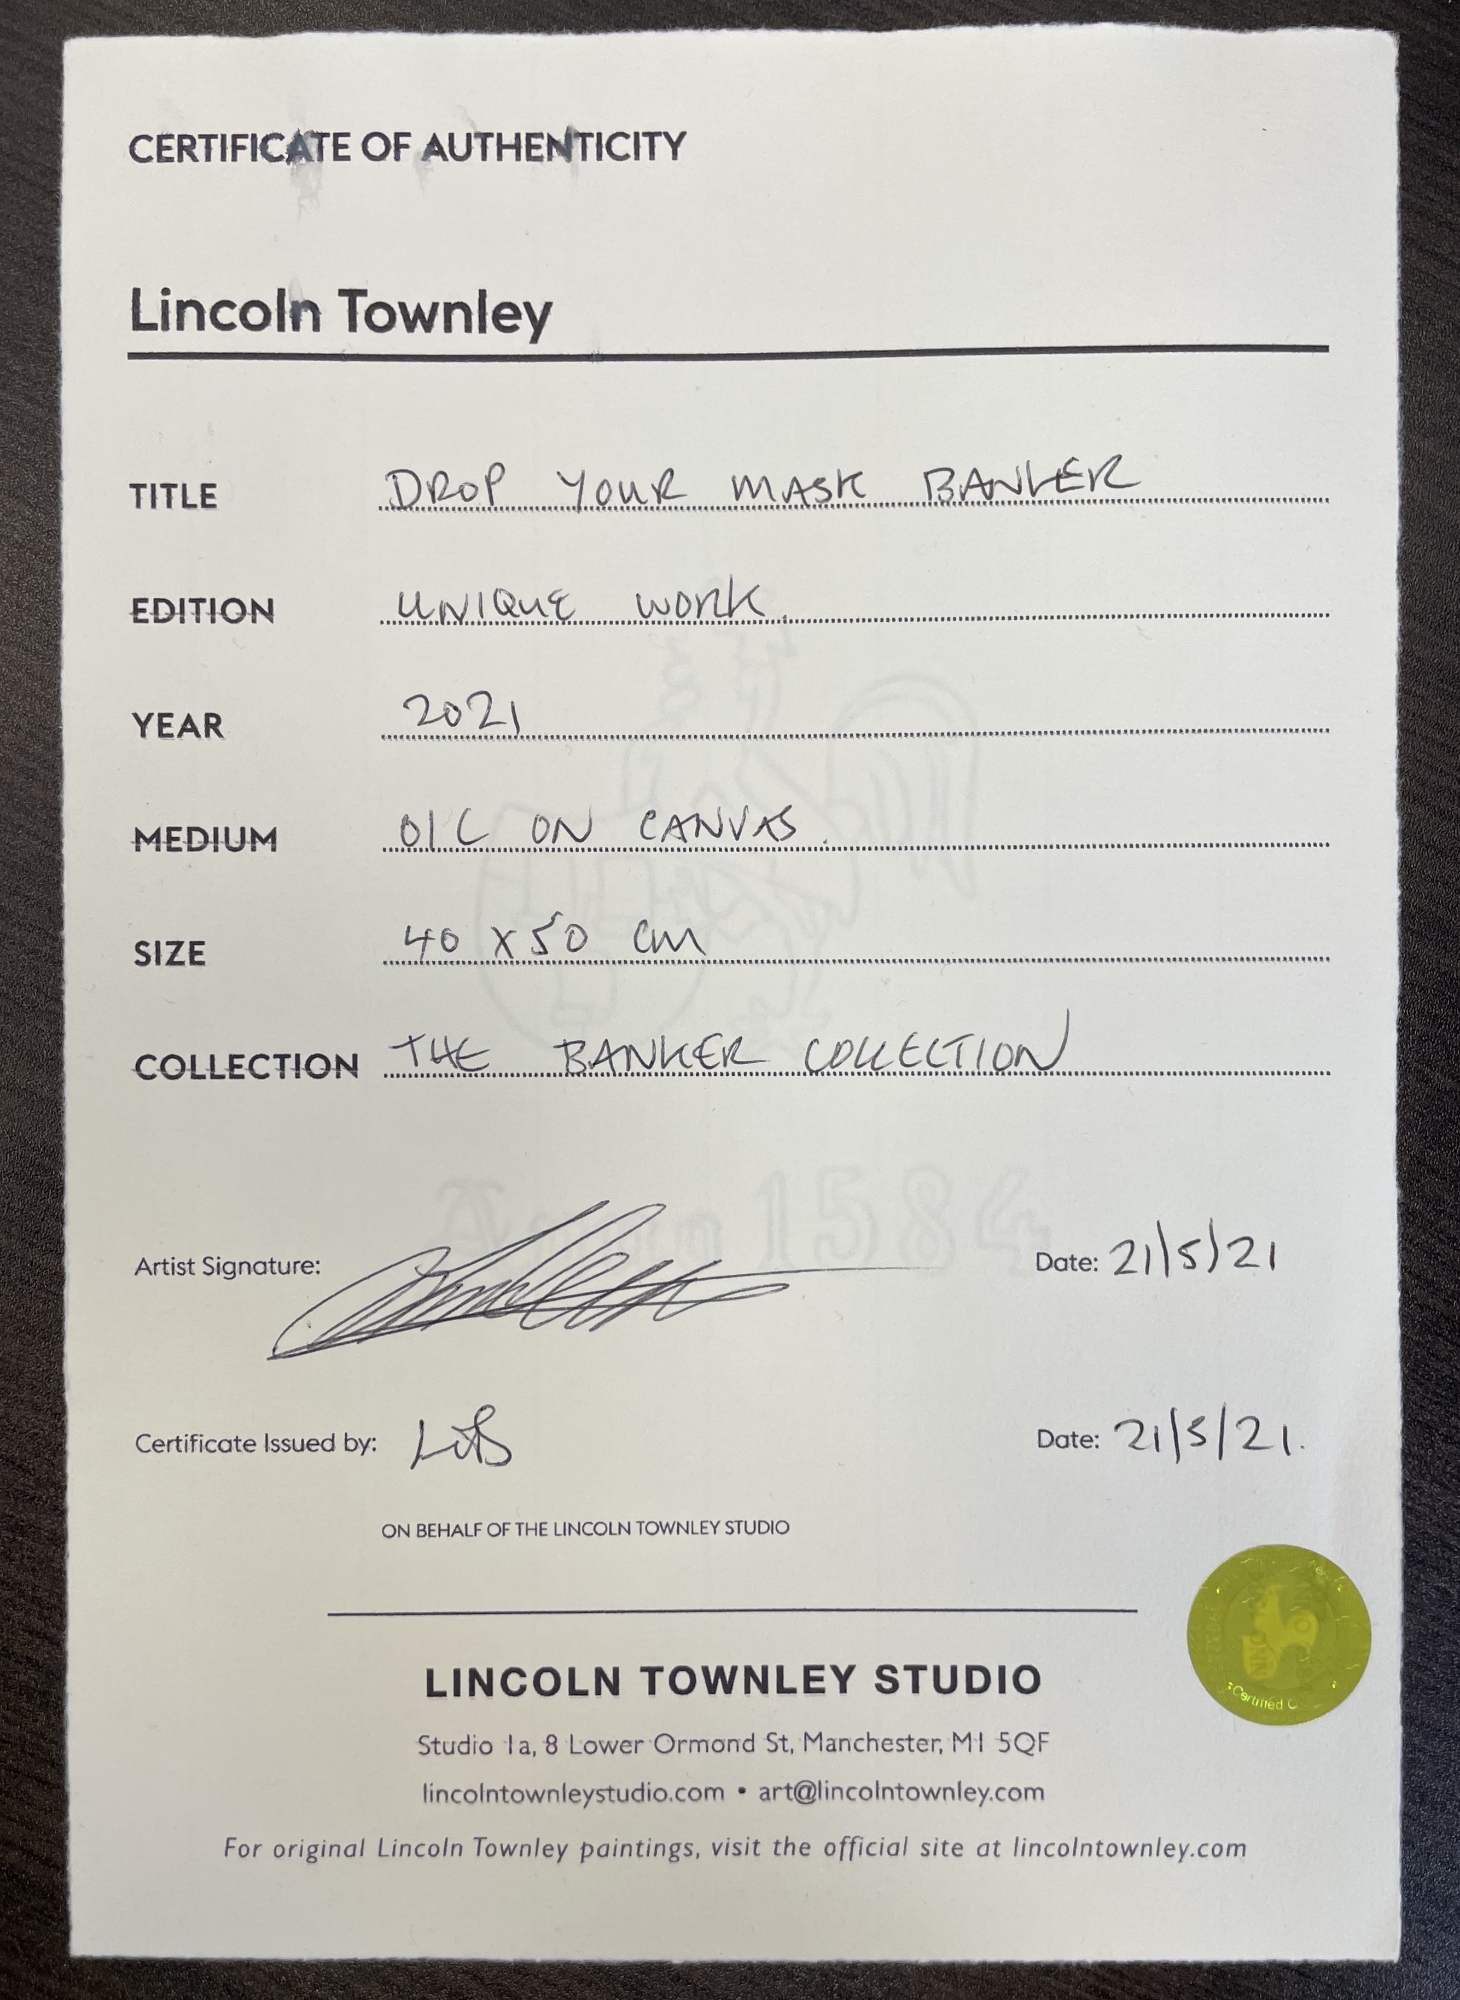 CERTIFICATE OF AUTHENTICITY
Lincoln Townley
TITLE DROP YOUR MASK BANKER
EDITION UNIQUE WORK.
YEAR 2021
MEDIUM OIL ON CANVAS.
SIZE 40 X 50 cm
COLLECTION THE BANKER COLLECTION
Anno 1584
Artist Signature: Date: 21/5/21
Certificate Issued by: Date: 21/5/21.
ON BEHALF OF THE LINCOLN TOWNLEY STUDIO
Certified
LINCOLN TOWNLEY STUDIO
Studio 1a, 8 Lower Ormond St, Manchester, M1 5QF
lincolntownleystudio.com • art@lincolntownley.com
For original Lincoln Townley paintings, visit the official site at lincolntownley.com